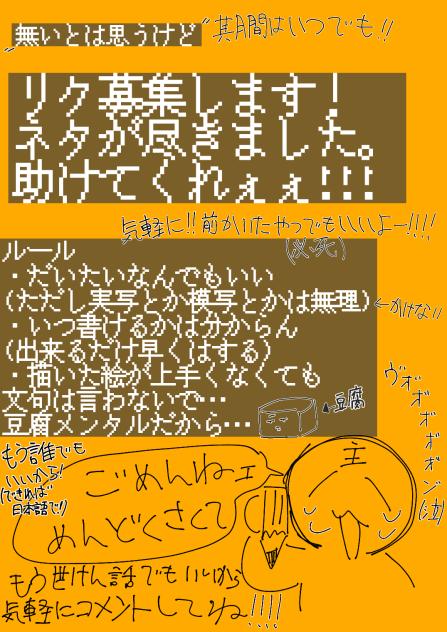 "無いとは思うけど"
期間はいつでも!!
リク募集します!
ネタが尽きました。
助けてくれぇぇ!!!
気軽に!!前かいたやつでもいいよー!!!!
ルール
・だいたいなんでもいい
(ただし実写とか模写とかは無理)←かけない!
・いつ書けるかは分からん
(出来るだけ早くはする)
・描いた絵が上手くなくても
文句は言わないで…
豆腐メンタルだから…
▲豆腐
ヴォボボボボン(泣)
もう誰でも
いいから!
(できれば
日本語で!)
ごめんねェ
めんどくさくて
主
もう世けん話でもいいから
気軽にコメントしてね!!!!